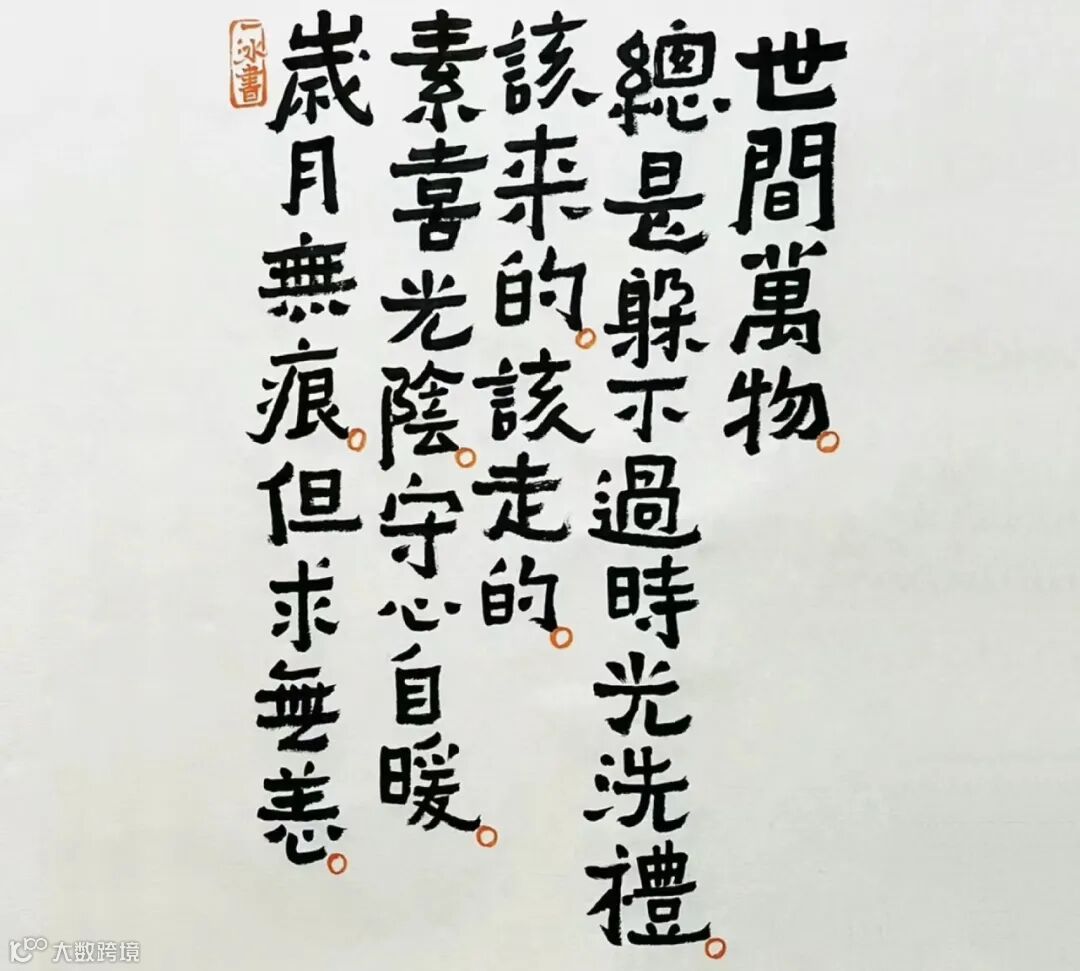 世間萬物。
總是躲不過時光洗禮。
該来的。該走的。
素喜光陰。守心自暖。
歲月無痕。但求無恙。
一泳書
大数跨境